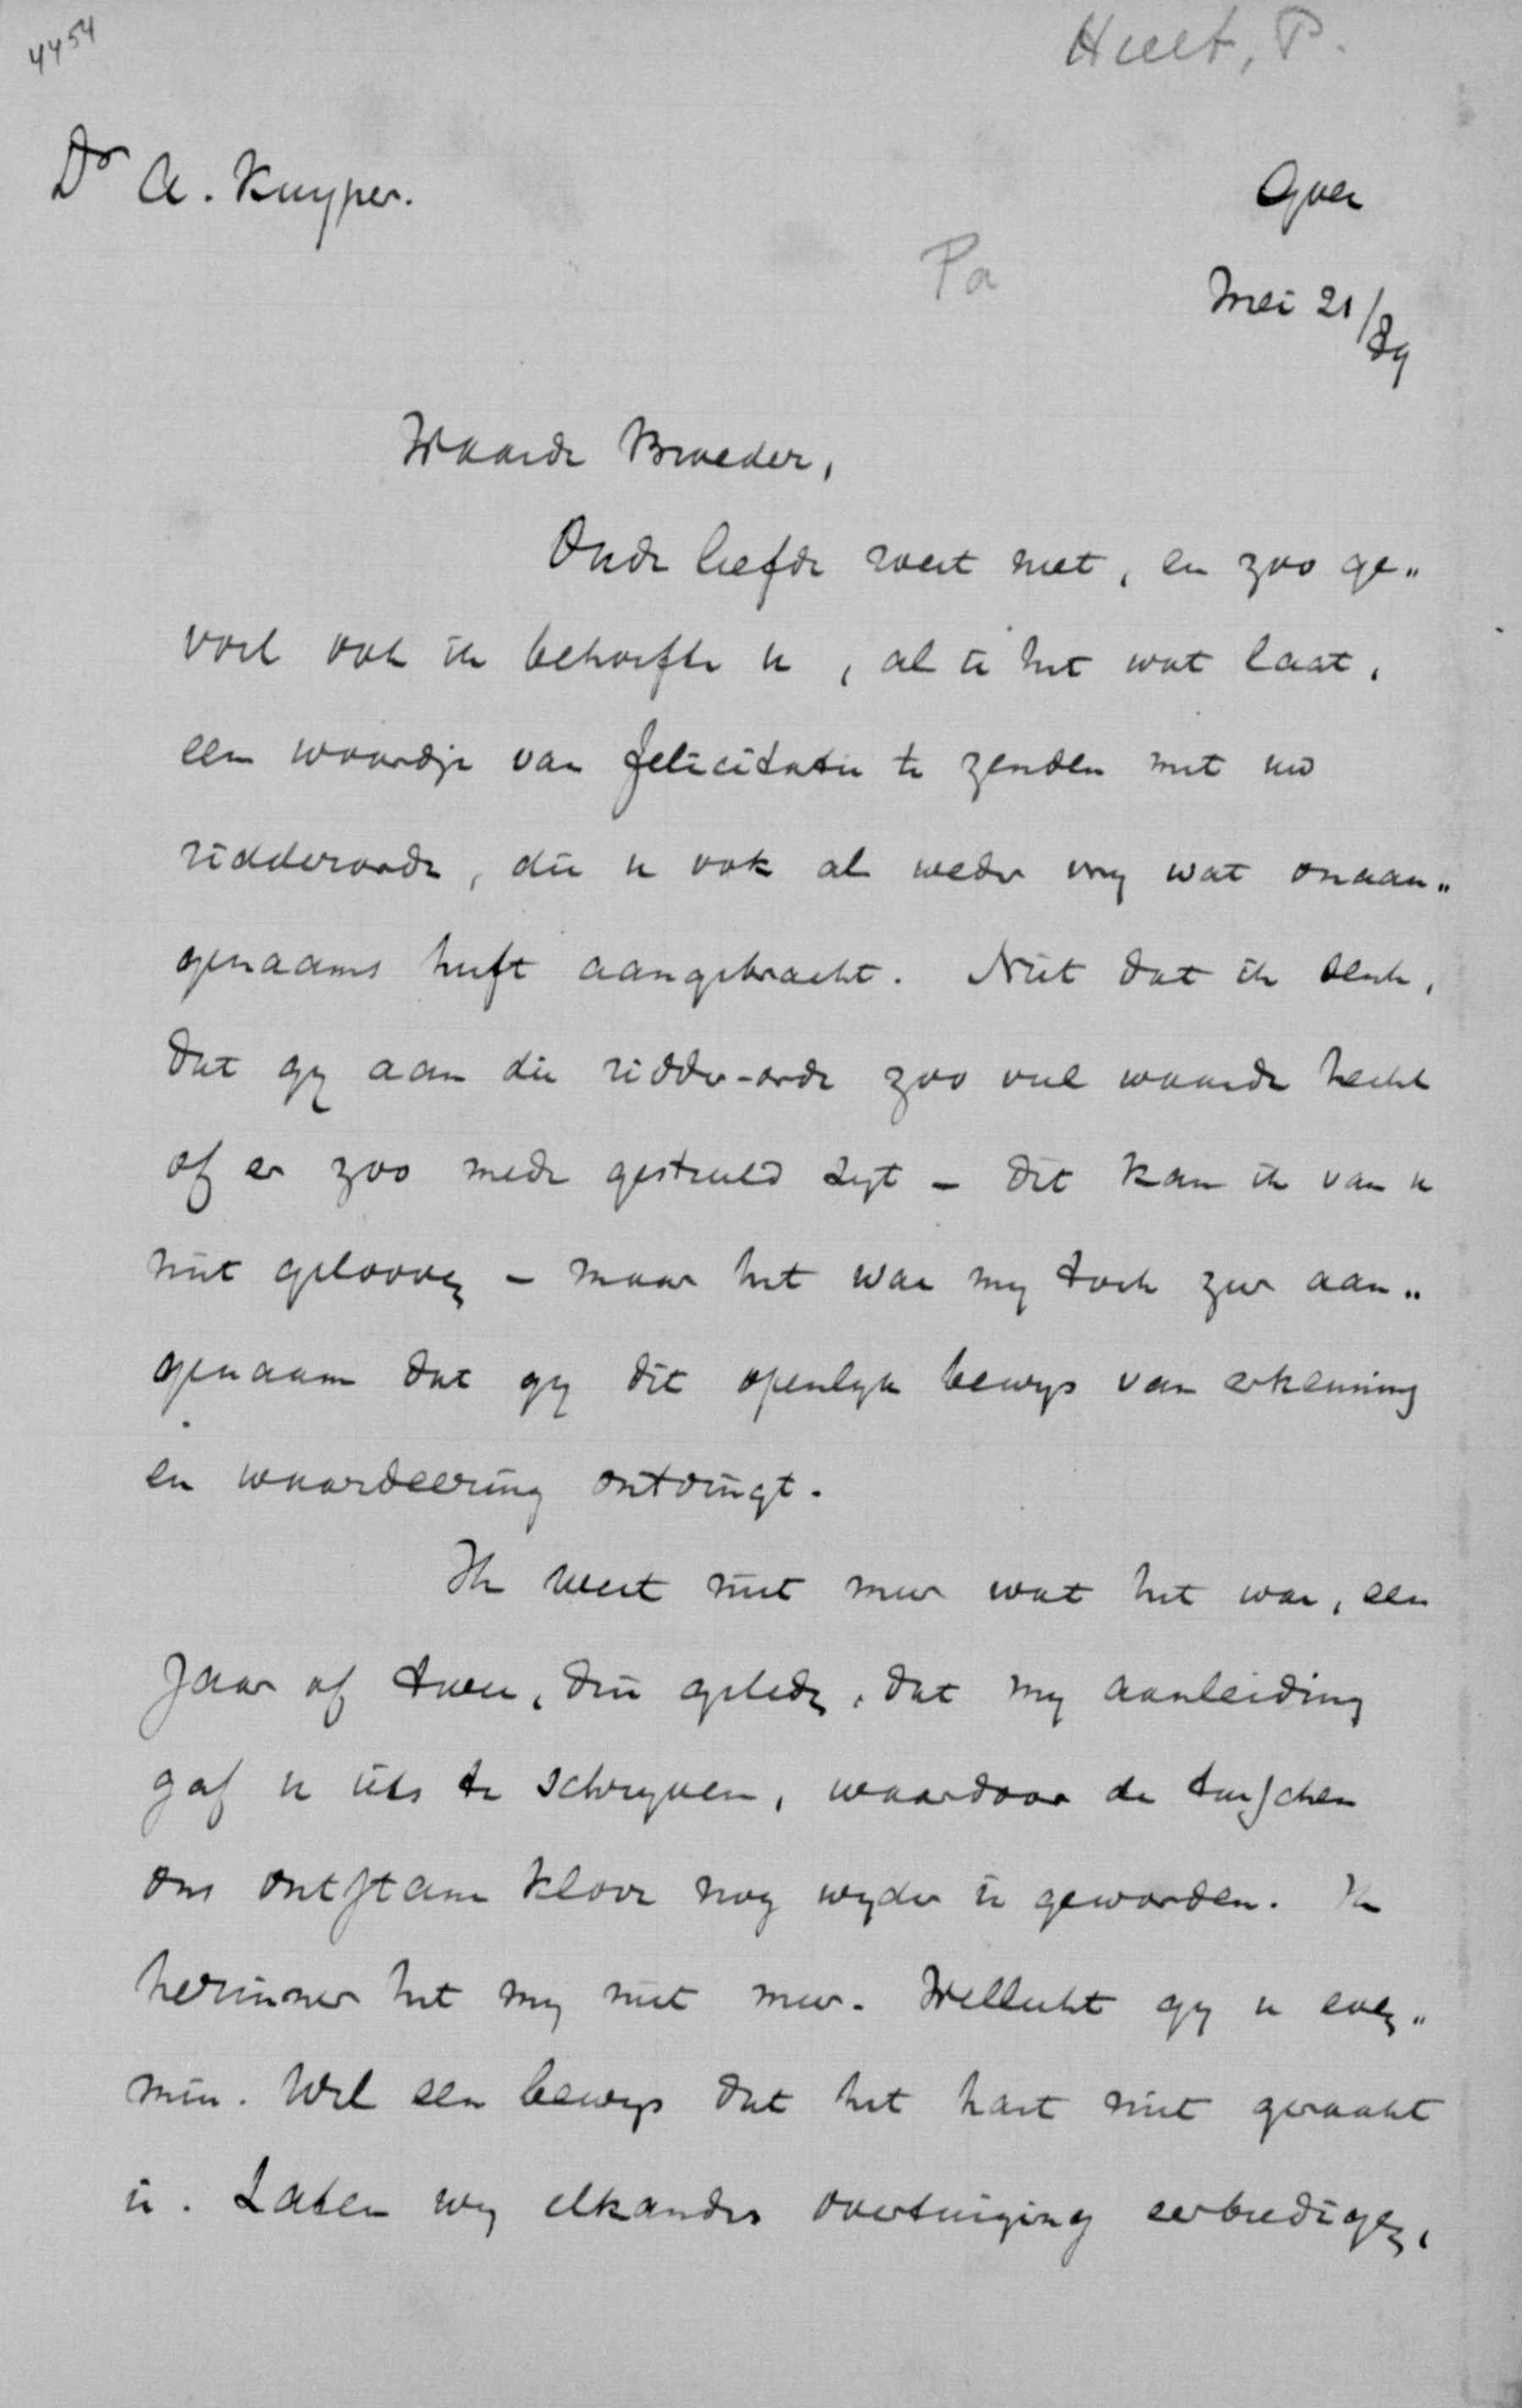 4454
Hulst, P.
Dr A. Kuyper.
Goes
Pa
Mei 21/89
Waarde Broeder,
Oude liefde roest niet, en zoo ge„
voel ook ik behoefte u, al is het wat laat,
een woordje van felicitatie te zenden met uw
ridderorde, die u ook al weder vrij wat onaan„
genaams heeft aangebracht. Niet dat ik denk,
dat gy aan die ridder-orde zoo veel waarde hecht
of er zoo mede gestreeld zyt – dit kan ik van u
niet gelooven – maar het was my toch zeer aan„
genaam dat gy dit openlyk bewys van erkenning
en waardeering ontvingt.
Ik weet niet meer wat het was, een
jaar of twee, drie geleden, dat my aanleiding
gaf u iets te schryven, waardoor de tusschen
ons ontstane kloove nog wyder is geworden. Ik
herinner het my niet meer. Wellicht gy u even„
min. Wel een bewys dat het hart niet geraakt
is. Laten wy elkanders overtuiging eerbiedigen,